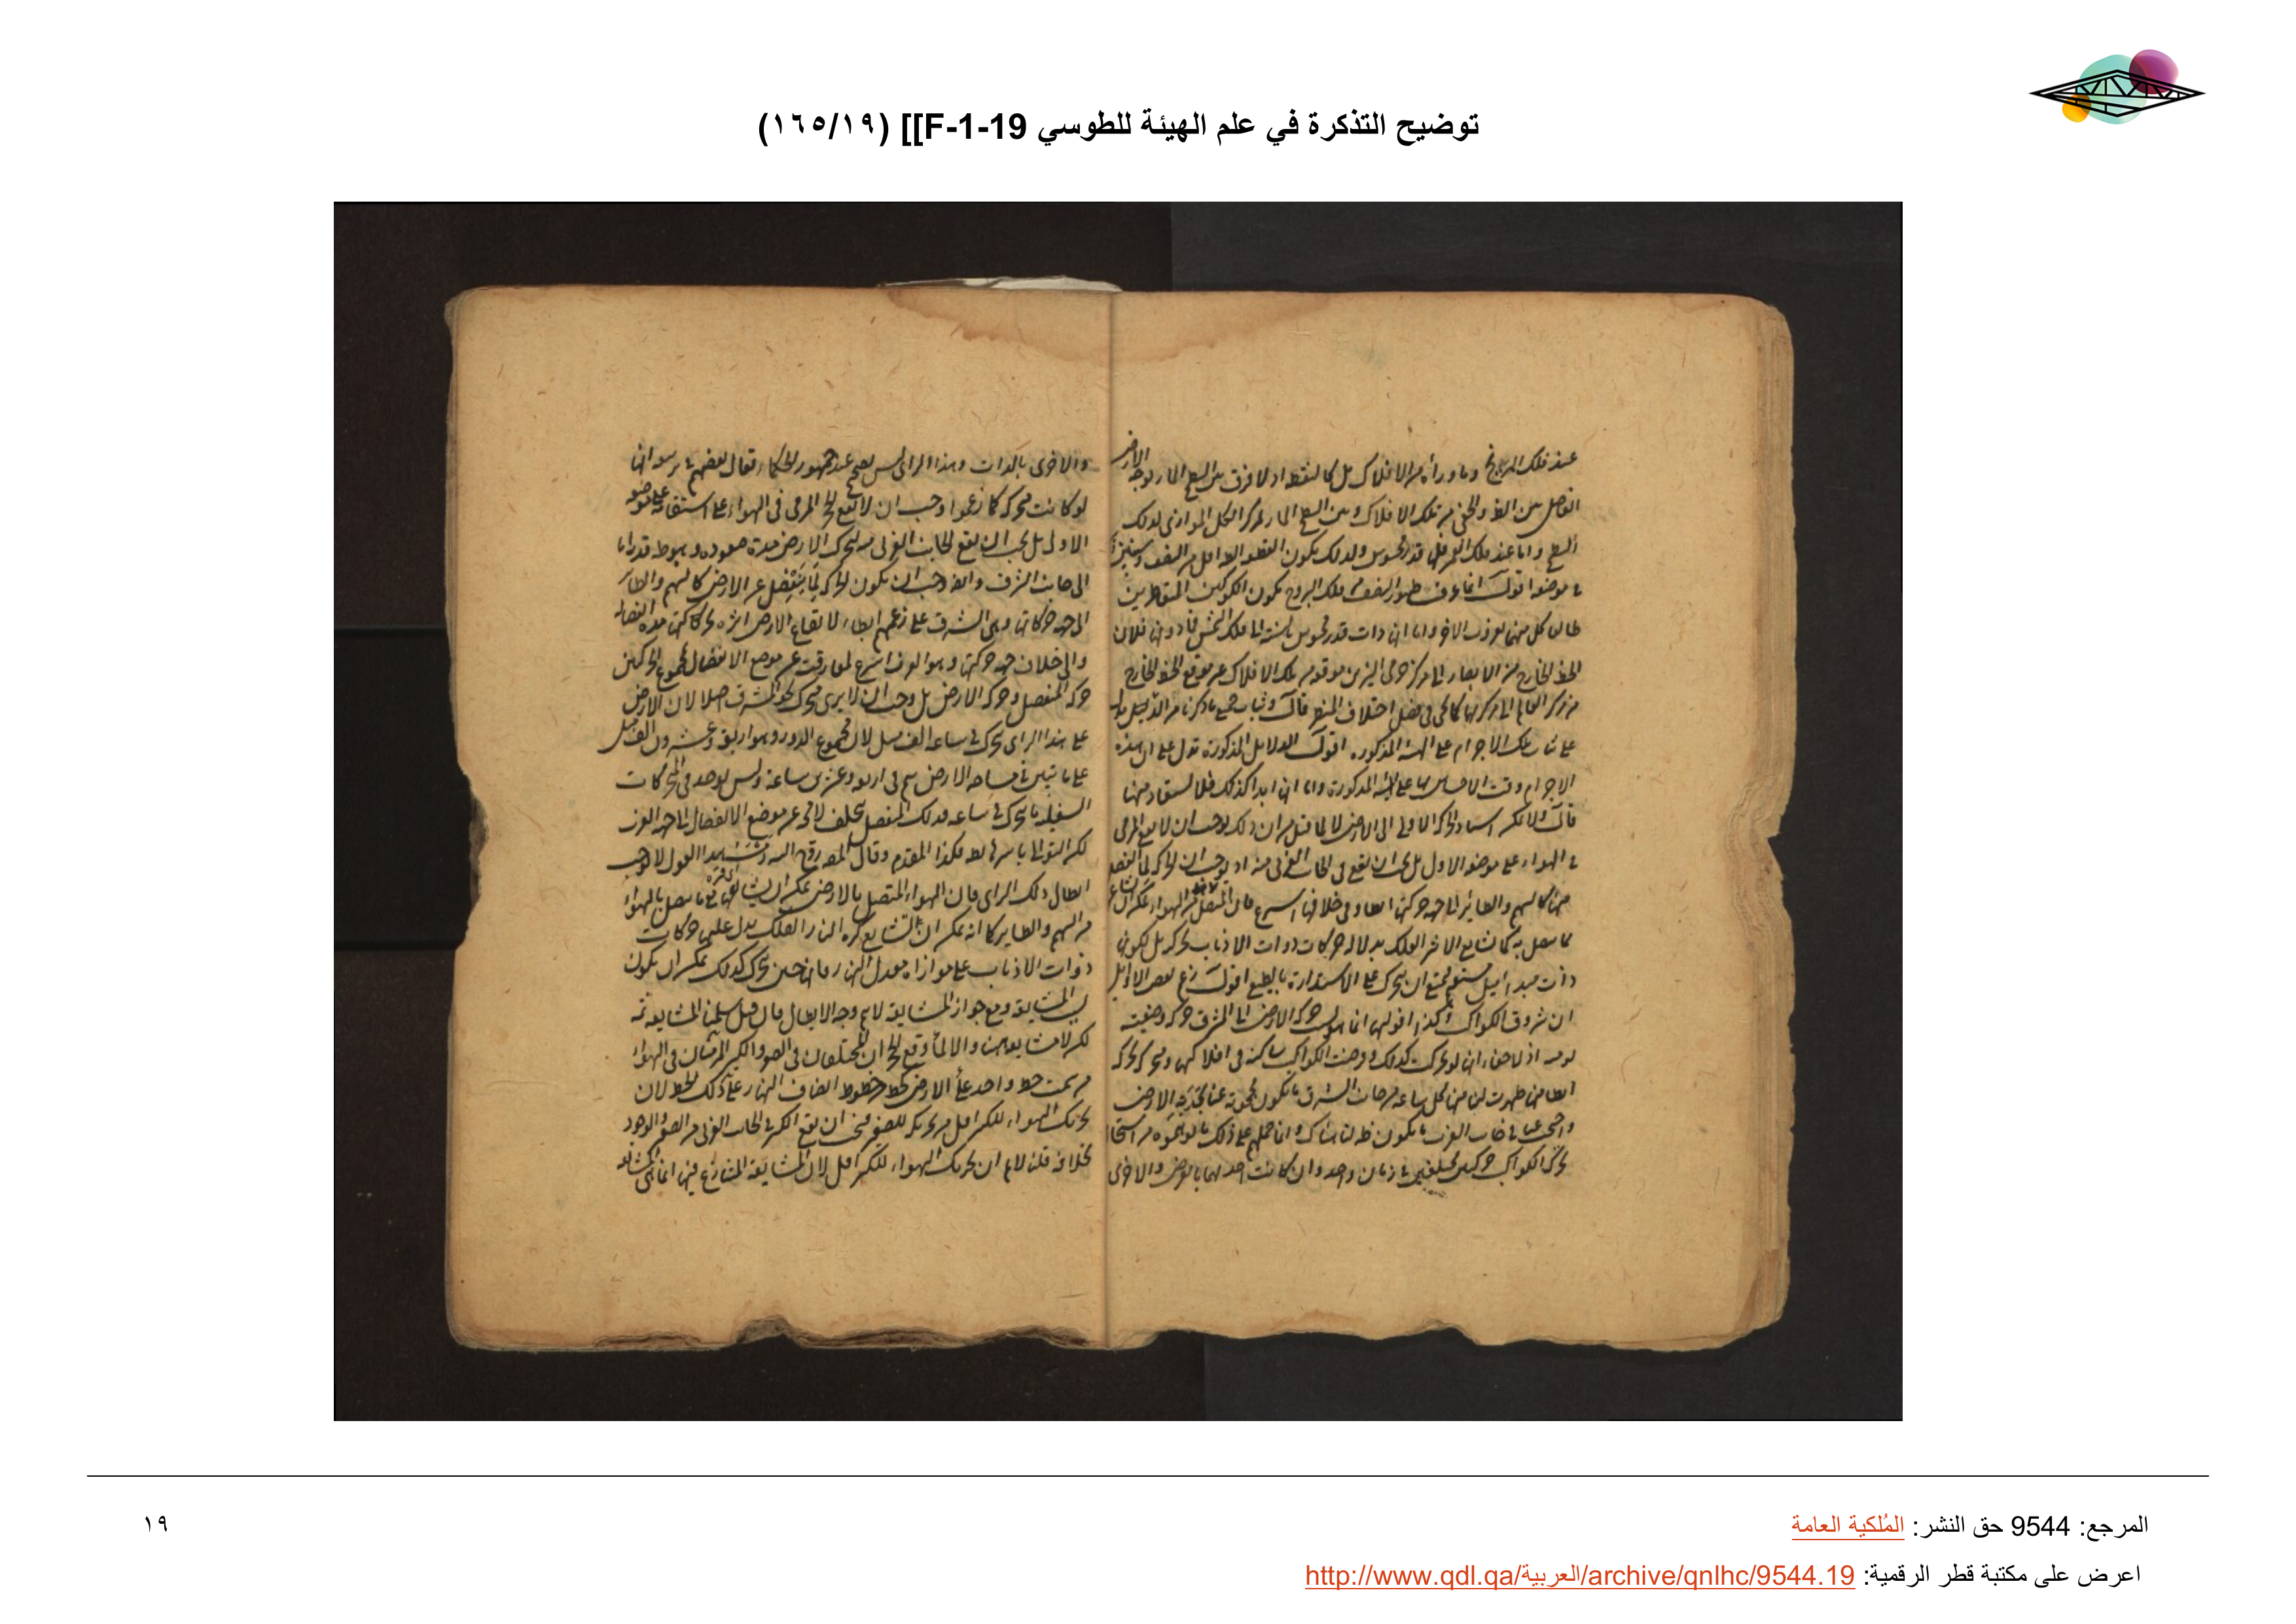 توضيح التذكرة في علم الهيئة للطوسي F-1-19]] (١٦٥/١٩)
عند فلك المريخ وما ورأه من الافلاك بل كالنقطة اذ لا فرق بين السطح المار بوجه الارض
الفاصل بين الظاهر والخفي من تلك الافلاك وبين السطح المار بمركز الكل الموازي لذلك
السطح واما عند فلك القمر فلها قدر محسوس ولذلك يكون القطعة الظاهرة اقل من النصف
في موضعه اقول انما عرف ظهور النصف من فلك البروج بكون الكوكبين المتقاطرين
طالعا كل منهما لغروب الاخر واما انها ذات قدر محسوس بالنسبة الى فلك الشمس فما دونها فلان
الخط الخارج من الابصار الى مركز جرمي النيرين موقعه من تلك الافلاك غير موقع الخط الخارج
من مركز العالم الى مركزيهما كما يجي في فصل اختلاف المنظر قال وثبات جميع ما ذكرنا من الدلايل يدل
على ثبات تلك الاجرام على الهيئة المذكورة. اقول الدلايل المذكورة تدل على ان هذه
الاجرام وقت الاحساس بها على الهيئة المذكورة واما انها ابدا كذلك فلا يستفاد منها
قال ولا يمكن اسناد الحركة الاولى الى الارض لا لما قيل من ان ذلك يوجب ان لا يقع المرمي
في الهواء على موضعه الاول بل يجب ان يقع في الجانب الغربي منه او يوجب ان الحركة لما ينفصل
منها كالسهم والطائر الى جهة حركتها ابطأ وفي خلافها اسرع فان المتصل بها من الهواء يمكن ان يشايعها
بما يتصل به كما يشايع الاثير الفلك بدلالة حركات ذوات الاذناب بحركته بل لكونها
ذات مبدا ميل مستقيم يمتنع ان يتحرك على الاستدارة بالطبع اقول زعم بعض الاوائل
ان شروق الكواكب وكذا افولها انما هو بسبب حركة الارض الى المشرق حركة وضعية
يومية اذ لا خفاء انها لو تحركت كذلك وفرضت الكواكب ساكنة في افلاكها او متحركة بحركة
ابطأ منها ظهرت لنا منها كل ساعة من جانب الشرق ما يكون محجوبة عنا بحدبة الارض
واحتجب عنا في جانب الغرب ما يكون ظاهرا لنا هناك وانما حملهم على ذلك ما توهموه من استحالة
تحرك الكواكب حركتين مختلفتين في زمان واحد وان كانت احديهما بالعرض والاخرى
والاخرى بالذات وهذا الراى ليس بصحيح عند جمهور الحكماء فقال بعضهم في رده انها
لو كانت متحركة كما زعموا وجب ان لا يقع الحجر المرمي في الهواء على استقامة على موضعه
الاول بل يجب ان يقع الجانب الغربي منه لتحرك الارض مدة صعوده وهبوطه قدرا ما
الى جانب الشرق وايضا وجب ان يكون الحركة لما ينفصل عن الارض كالسهم والطائر
الى جهة حركاتها وهي الشرق على زعمهم ابطاء لاتباع الارض اثره بحركاتها مدة انفصاله
والى خلاف جهة حركتها وهو الغرب اسرع لمفارقته عن موضع الانفصال بمجموع الحركتين
حركة المنفصل وحركة الارض بل وجب ان لا يرى متحرك نحو المشرق اصلا لان الارض
على هذا الراى تتحرك في ساعة الف ميل لان مجموع الدور وهو اربعة وعشرون الف ميل
على ما تبين في مساحة الارض يتم في اربع وعشرين ساعة وليس يوجد في المتحركات
السفلية ما يتحرك في ساعة فذلك المنفصل يتخلف لا محة عن موضع الانفصال الى جهة الغرب
لكن التوالي باسرها بط فكذا المقدم وقال المصنف رح السه هذا القول لا يوجب
ابطال ذلك الراى فان الهواء المتصل بالارض يمكن ان يشايعها مع ما يتصل بالهواء
من السهم والطاير كما انه يمكن ان يشايع كرة النار الفلك يدل عليه حركات
ذوات الاذناب على موازاة معدل النهار زمانا حين تتحرك كذلك يمكن ان يكون
بالمشايعة ومع جواز المشايعة لا يتم وجه الابطال فان قيل سلمنا المشايعة ثمة
لكن لا مشايعة ههنا والا لما وقع الحجران المختلفان في الصغر والكبر المرميان في الهواء
من سمت خط واحد على الارض كخط من خطوط انصاف النهار على ذلك الخط لان
تحريك الهواء للكبير اقل من تحريكه للصغير فيجب ان يقع الكبير في الجانب الغربي من الصغير والوجود
بخلافه قلنا لا نم ان تحريك الهواء للكبير اقل لان المشايعة المتنازع فيها انما هي المشايعة
المرجع: 9544 حق النشر: المُلكية العامة
١٩
اعرض على مكتبة قطر الرقمية: http://www.qdl.qa/العربية/archive/qnlhc/9544.19